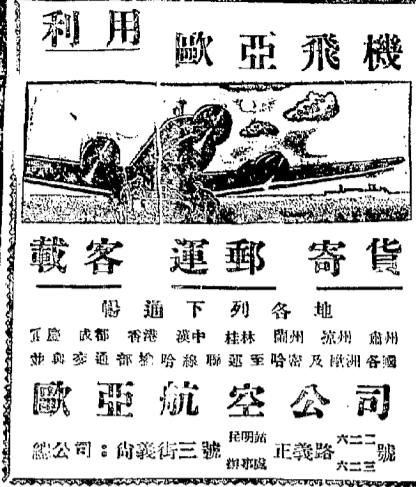 利用
歐亞飛機
載客 運郵 寄貨
暢通下列各地
重慶 成都 香港 漢中 桂林 蘭州 涼州 肅州
並與交通部渝哈線聯運至哈密及歐洲各國
歐亞航空公司
總公司：尚義街三號 昆明站辦事處 正義路 六二二 六二三 號